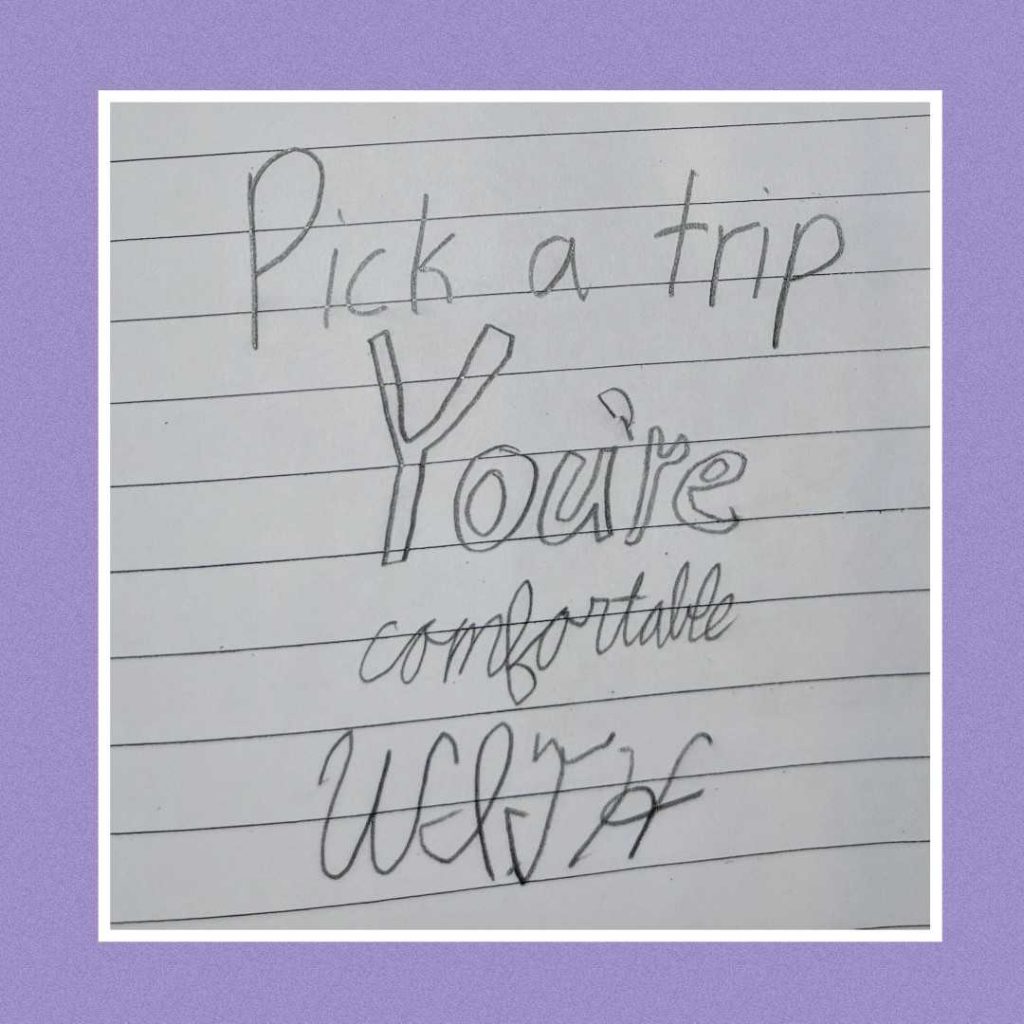 Pick a trip
You're
comfortable
WITH